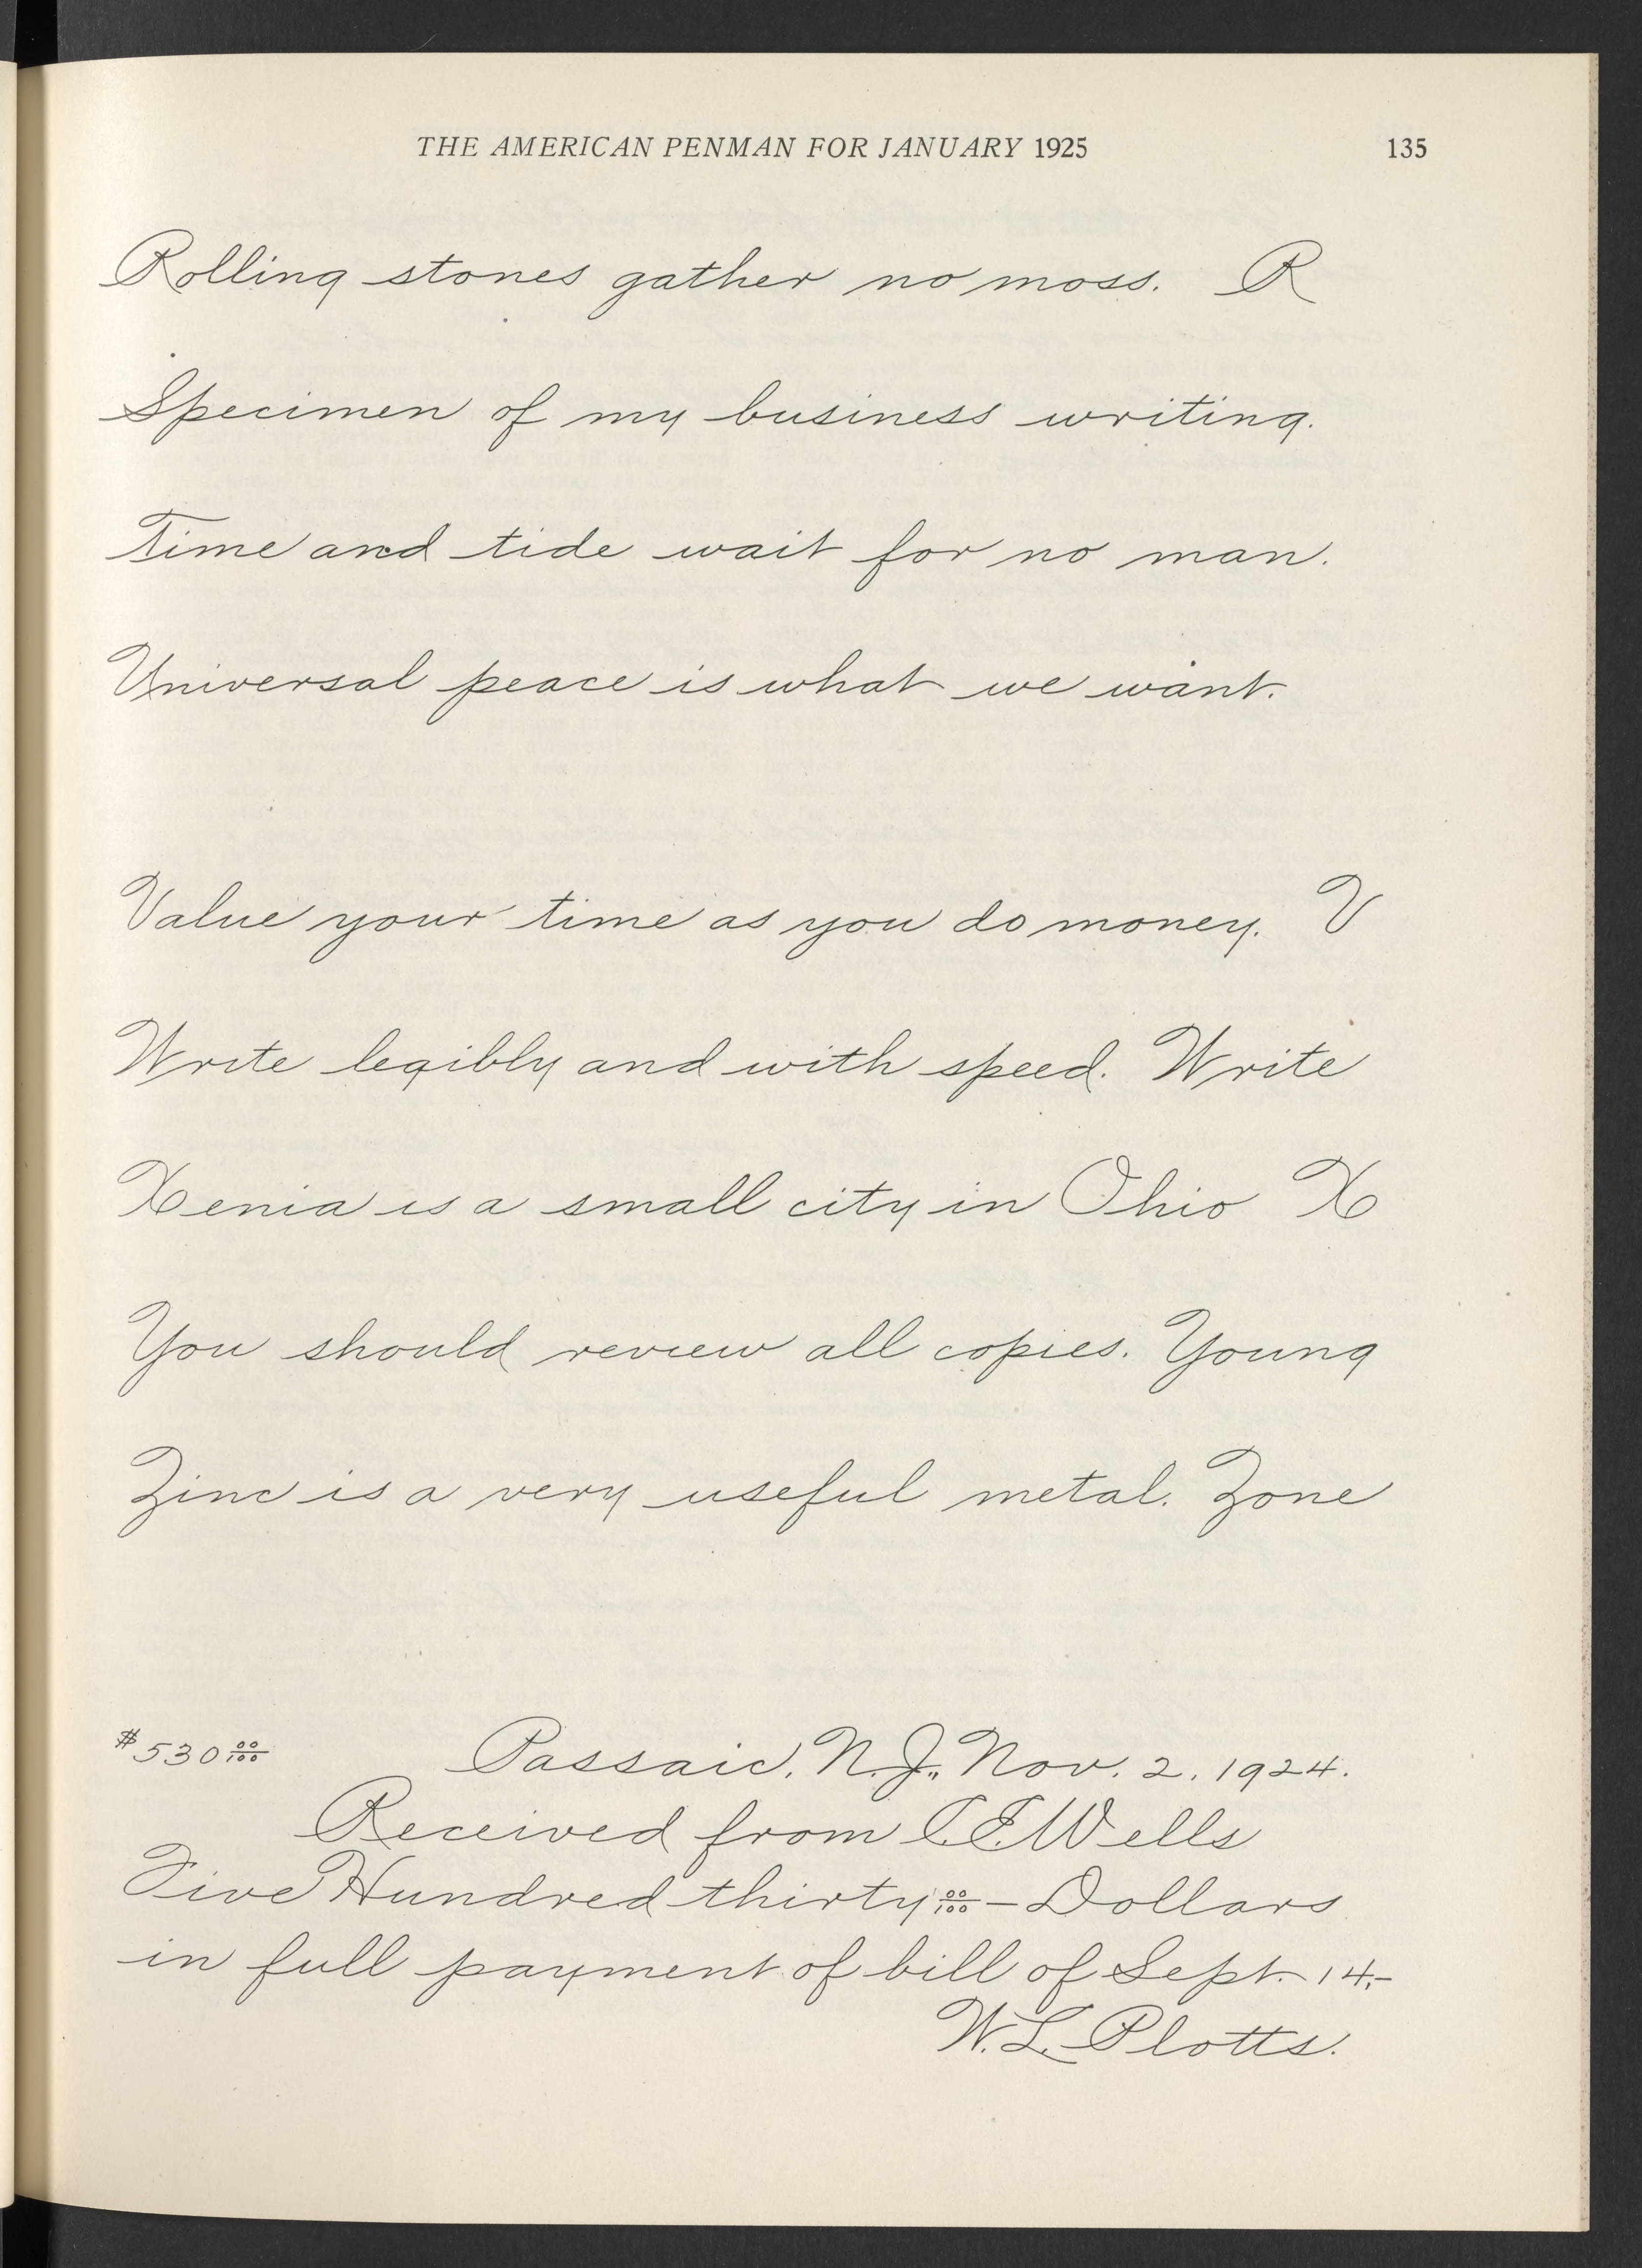 THE AMERICAN PENMAN FOR JANUARY 1925 135
Rolling stones gather no moss. R
Specimen of my business writing.
Time and tide wait for no man.
Universal peace is what we want.
Value your time as you do money. V
Write legibly and with speed. Write
Xenia is a small city in Ohio X
You should review all copies. Young
Zinc is a very useful metal. Zone
$530 00/100 Passaic, N.J., Nov. 2, 1924.
Received from C.E. Wells
Five Hundred thirty 00/100 — Dollars
in full payment of bill of Sept. 14,-
W.L. Plotts.